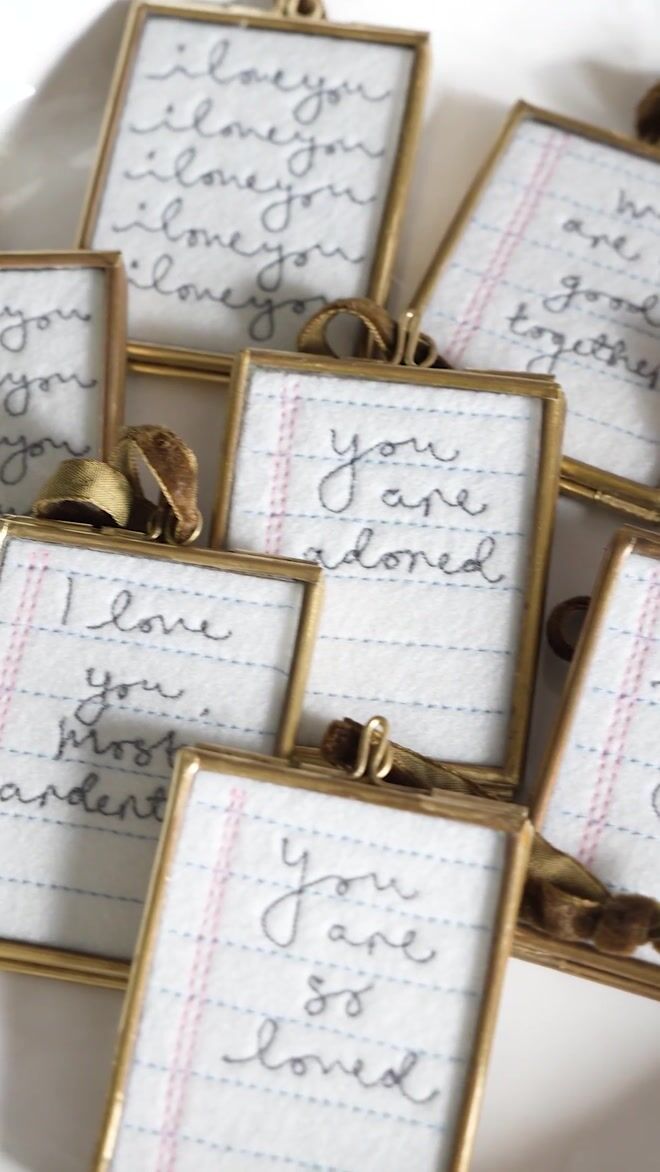 i love you
i love you
i love you
i love you
i love you
are
good
together
you
you
you
you
are
adored
I love
you,
most
you
are
so
loved